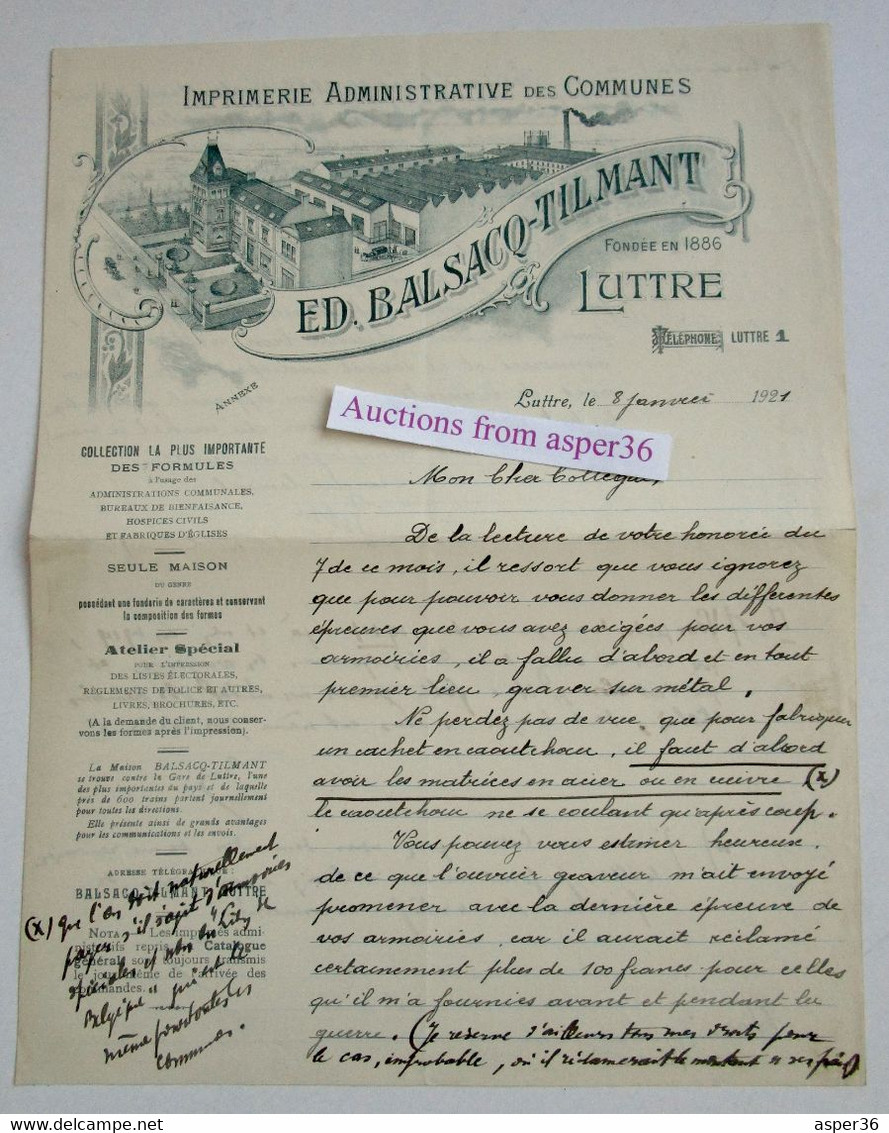 IMPRIMERIE ADMINISTRATIVE DES COMMUNES
ED. BALSACQ-TILMANT
FONDÉE EN 1886
LUTTRE
TÉLÉPHONE LUTTRE 1
ANNEXE
Luttre, le 8 janvier 1921
Auctions from asper36
COLLECTION LA PLUS IMPORTANTE
DES FORMULES
à l'usage des
ADMINISTRATIONS COMMUNALES,
BUREAUX DE BIENFAISANCE,
HOSPICES CIVILS
ET FABRIQUES D'ÉGLISES
SEULE MAISON
DU GENRE
possédant une fonderie de caractères et conservant
la composition des formes
Atelier Spécial
POUR L'IMPRESSION
DES LISTES ÉLECTORALES,
RÈGLEMENTS DE POLICE ET AUTRES,
LIVRES, BROCHURES, ETC.
(A la demande du client, nous conser-
vons les formes après l'impression).
La Maison BALSACQ-TILMANT
se trouve contre la Gare de Luttre, l'une
des plus importantes du pays et de laquelle
près de 600 trains partent journellement
pour toutes les directions.
Elle présente ainsi de grands avantages
pour les communications et les envois.
ADRESSE TÉLÉGRAPHIQUE :
BALSACQ-TILMANT LUTTRE
NOTA. Les imprimés admi-
nistratifs repris au Catalogue
général sont toujours transmis
le jour même de l'arrivée des
demandes.
(x) Que l'on doit naturellement
payer, s'il s'agit d'armoiries
spéciales et non du "Lion
Belgique" qui est le
même pour toutes les
communes.
Mon Cher Collègue,
De la lecture de votre honorée du
7 de ce mois, il ressort que vous ignorez
que pour pouvoir vous donner les différentes
épreuves que vous avez exigées pour vos
armoiries, il a fallu d'abord et en tout
premier lieu, graver sur métal.
Ne perdez pas de vue, que pour fabriquer
un cachet en caoutchouc, il faut d'abord
avoir les matrices en acier ou en cuivre (x)
le caoutchouc ne se coulant qu'après coup.
Vous pouvez vous estimer heureux,
de ce que l'ouvrier graveur m'ait envoyé
promener avec la dernière épreuve de
vos armoiries, car il aurait réclamé
certainement plus de 100 francs pour celles
qu'il m'a fournies avant et pendant la
guerre. (Je réserve d'ailleurs tous mes droits pour
le cas, improbable, où il réclamerait le montant
asper36